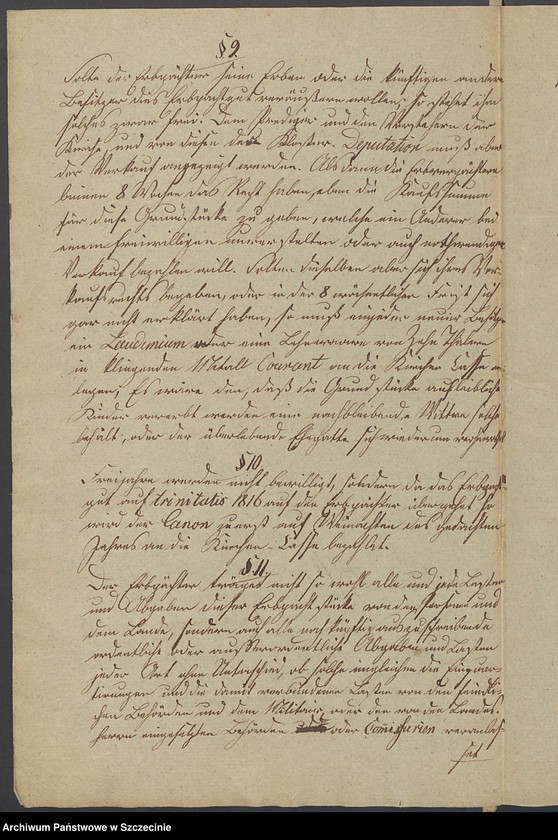 § 9
Solte der Erbpächter seine Erben oder die künftigen andern
Besitzer dies Erbpachtgut veräußern wollen, so stehet ihm
solches zwar frei. Dem Prediger und den Vorstehern der
Kirche, und von diesen der Kloster-Deputation muß aber
der Verkauf angezeigt werden. Alsdann die Erbverpächtere
binnen 8 Wochen das Recht haben, eben die Kauf Summe
für diese Grundstücke zu geben, welche ein Anderer bei
einem freiwilligen unverstelten oder auch nothwendigen
Verkauf bezahlen will. Solten dieselben aber sich ihres Ver-
kaufsrechts begeben, oder in der 8 wöchentlichen Frist sich
gar nicht erklärt haben, so muß ein jeder neuer Besitzer
ein Laudimium oder eine Lehnwaare von Zehn Thalern
in klingenden Metall Courant an die Kirchen Casse er-
legen, Es wäre den, daß die Grundstücke auf leibliche
Kinder vererbt werden eine nachbleibende Wittwe solche
behält, oder der überlebende Ehegatte sich wiederum verheirathet
§ 10.
Freijahre werden nicht bewilligt, sondern da das Erbpacht-
gut auf trinitatis 1816 auf den Erbpächter übergehet so
wird der Canon zuerst auf Weinachten des gedachten
Jahres an die Kirchen-Casse bezahlet.
§ 11.
Der Erbpächter träget nicht so wohl alle und jede Lasten
und Abgaben dieser Erbpachtstücke von den Personen und
dem Lande, sondern auch alle noch künftig auszuschreibende
ordentliche oder ausserordentliche Abgaben und Lasten
jeder Art ohne Unterschied, ob solche imgleichen die Einquar-
tirungen und die damit verbundene Lasten von den feindli-
chen Behörden und dem Militair, oder den von den Landes-
herrn eingesetzten Behörden oder Commissarien veranlas-
set
Archiwum Państwowe w Szczecinie